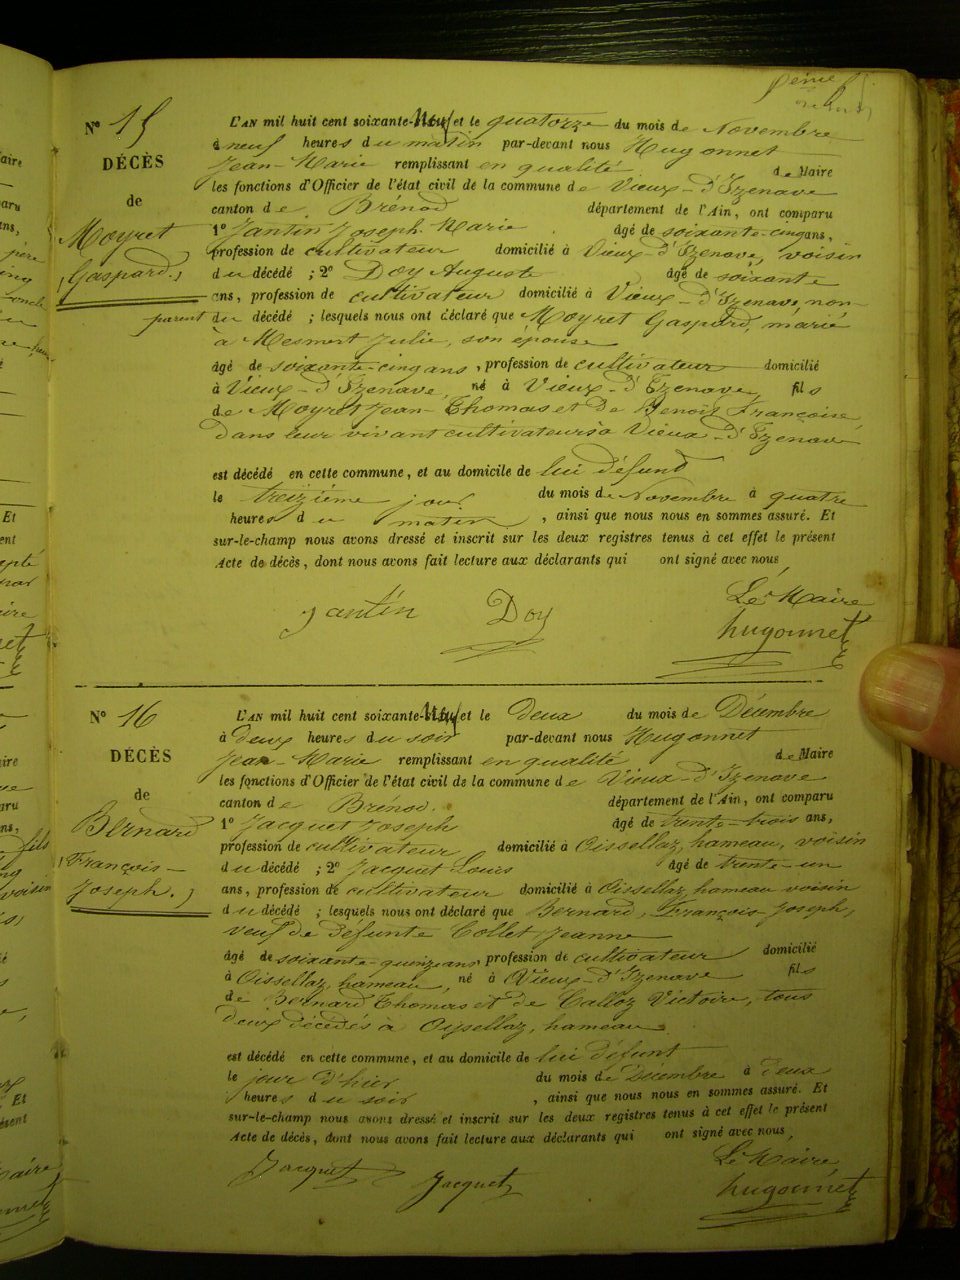 N° 15
DÉCÈS
de
Moyret
(Gaspard.)
L'AN mil huit cent soixante-Neuf et le quatorze du mois de Novembre
à neuf heures du matin par-devant nous Hugonnet
Jean-Marie remplissant en qualité de Maire
les fonctions d'Officier de l'état civil de la commune de Vieux-d'Izenave
canton de Brénod département de l'Ain, ont comparu
1° Jantin Joseph Marie âgé de soixante-cinq ans,
profession de cultivateur domicilié à Vieux-d'Izenave, voisin
du décédé ; 2° Doy Auguste âgé de soixante
ans, profession de cultivateur domicilié à Vieux-d'Izenave, non-
parent du décédé ; lesquels nous ont déclaré que Moyret Gaspard, marié
à Mesmert Julie, son épouse
âgé de soixante-cinq ans, profession de cultivateur domicilié
à Vieux-d'Izenave, né à Vieux-d'Izenave, fils
de Moyret Jean-Thomas et de Benoit Françoise,
dans leur vivant cultivateurs à Vieux-d'Izenave
est décédé en cette commune, et au domicile de lui défunt
le treizième jour du mois de Novembre à quatre
heures du matin, ainsi que nous nous en sommes assuré. Et
sur-le-champ nous avons dressé et inscrit sur les deux registres tenus à cet effet le présent
Acte de décès, dont nous avons fait lecture aux déclarants qui ont signé avec nous,
Le Maire
Jantin Doy hugonnet
N° 16
DÉCÈS
de
Bernard
(François-
Joseph.)
L'AN mil huit cent soixante-Neuf et le deux du mois de Décembre
à deux heures du soir par-devant nous Hugonnet
Jean-Marie remplissant en qualité de Maire
les fonctions d'Officier de l'état civil de la commune de Vieux-d'Izenave
canton de Brénod. département de l'Ain, ont comparu
1° Jacquet Joseph âgé de trente-trois ans,
profession de cultivateur domicilié à Oissellaz, hameau, voisin
du décédé ; 2° Jacquet Louis âgé de trente-un
ans, profession de cultivateur domicilié à Oissellaz, hameau voisin
du décédé ; lesquels nous ont déclaré que Bernard, François-Joseph,
veuf de défunte Collet Jeanne
âgé de soixante-quinze ans, profession de cultivateur domicilié
à Oissellaz, hameau, né à Vieux-d'Izenave fils
de Bernard Thomas et de Calloz Victoire, tous
deux décédés à Oissellaz, hameau
est décédé en cette commune, et au domicile de lui défunt
le jour d'hier du mois de Décembre à deux
heures du soir, ainsi que nous nous en sommes assuré. Et
sur-le-champ nous avons dressé et inscrit sur les deux registres tenus à cet effet le présent
Acte de décès, dont nous avons fait lecture aux déclarants qui ont signé avec nous,
Le Maire,
Jacquet Jacquet hugonnet